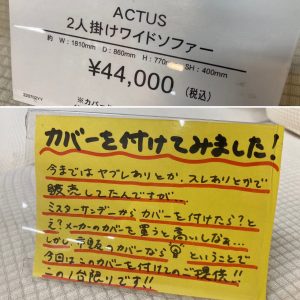 ACTUS
2人掛けワイドソファー
約 W:1810mm D:860mm H:770mm SH:400mm
¥44,000(税込)
カバーを付けてみました!
今まではヤブレありとか、スレありとかで
販売してたんですが…
ミスターサンデーからカバーを付けたら?と
え?メーカーのカバーを買うと高いしなぁ…
しかし市販のカバーなら ということで
今回はこのカバーを付けてのご提供!!
この1台限りです!!